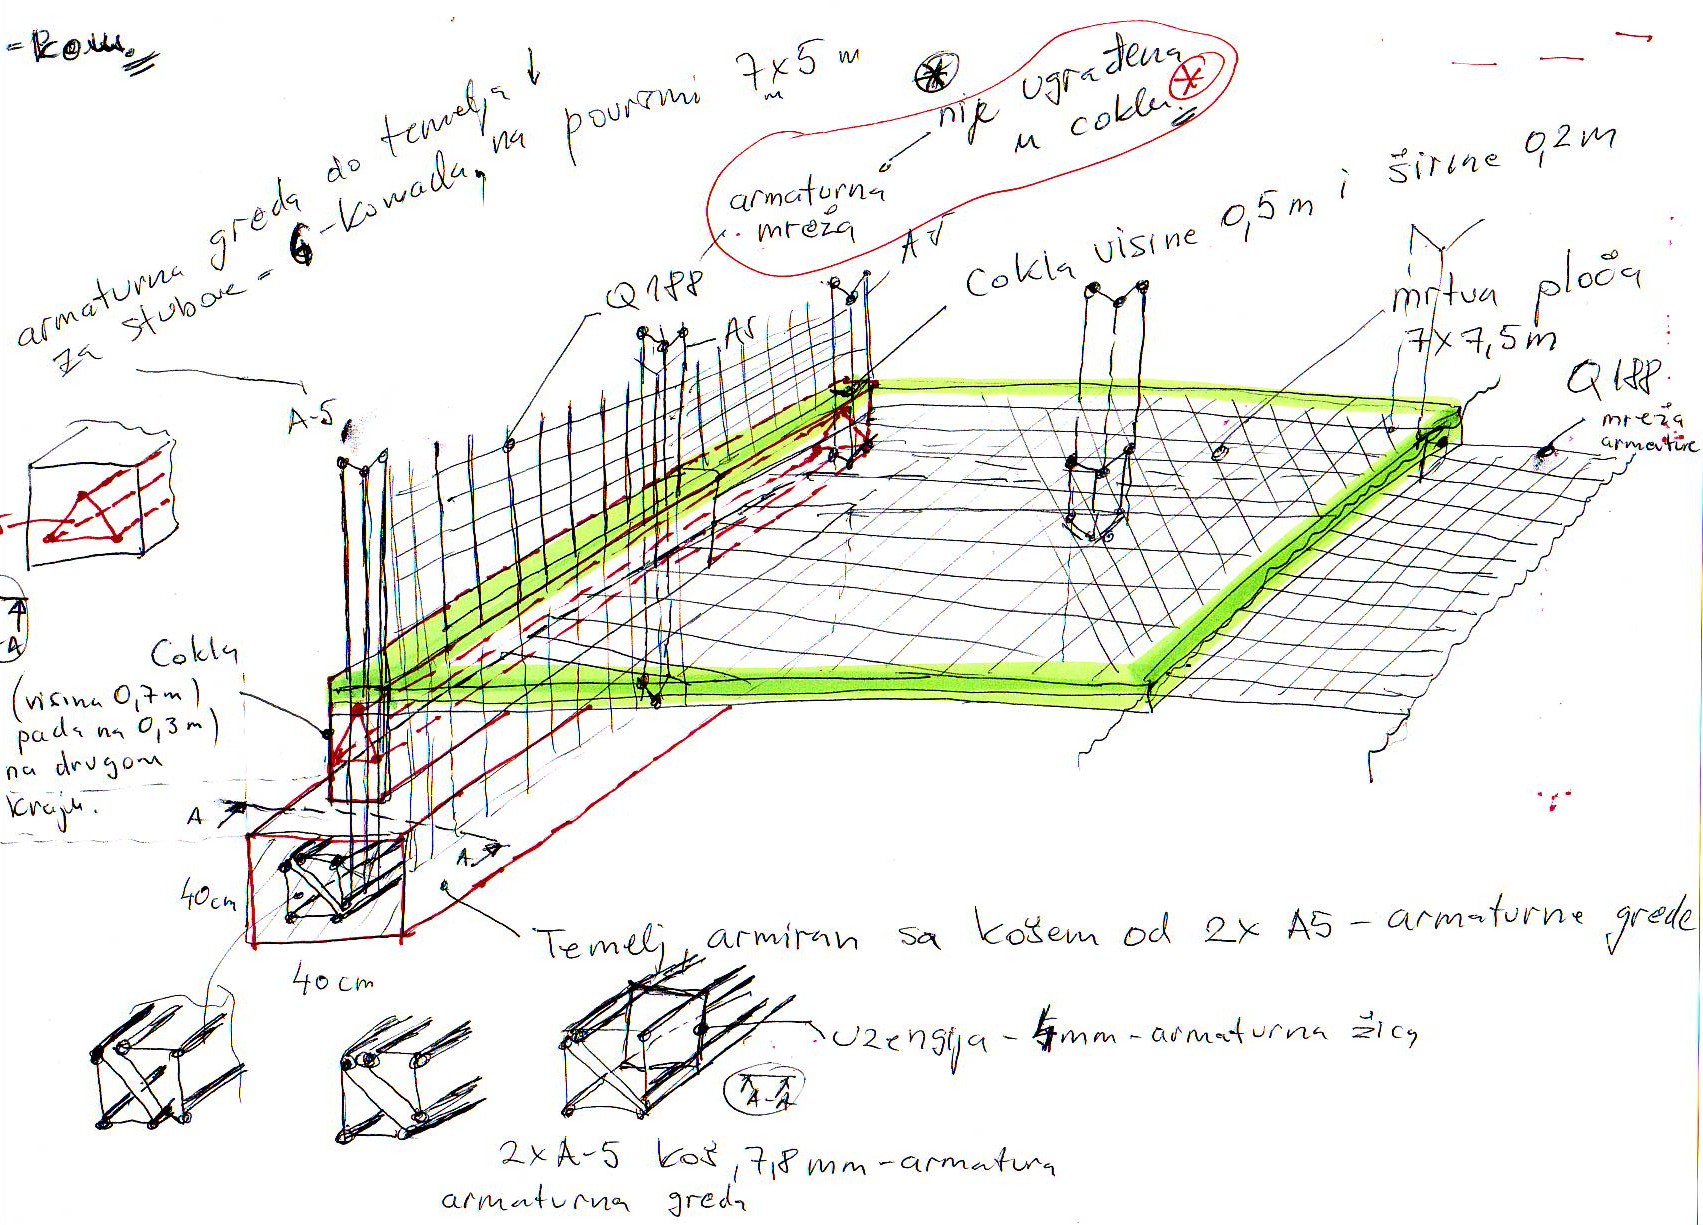 = kom.
armaturna greda do temelja ↓
za stubove = 6 - komada, na površini 7x5 m
m
nije ugrađena
u coklu.
armaturna
mreža
Q188
A5
A-5
Cokla visine 0,5m i širine 0,2m
mrtva ploča
7x7,5m
Q188
mreža
armature
A-5
A
Cokla
(visina 0,7m)
pada na 0,3m)
na drugom
kraju.
A
A
40cm
40cm
Temelj, armiran sa košem od 2x A5 - armaturne grede
uzengija - 4mm - armaturna žica
A-A
2xA-5 koš, 7,8mm - armatura
armaturna greda